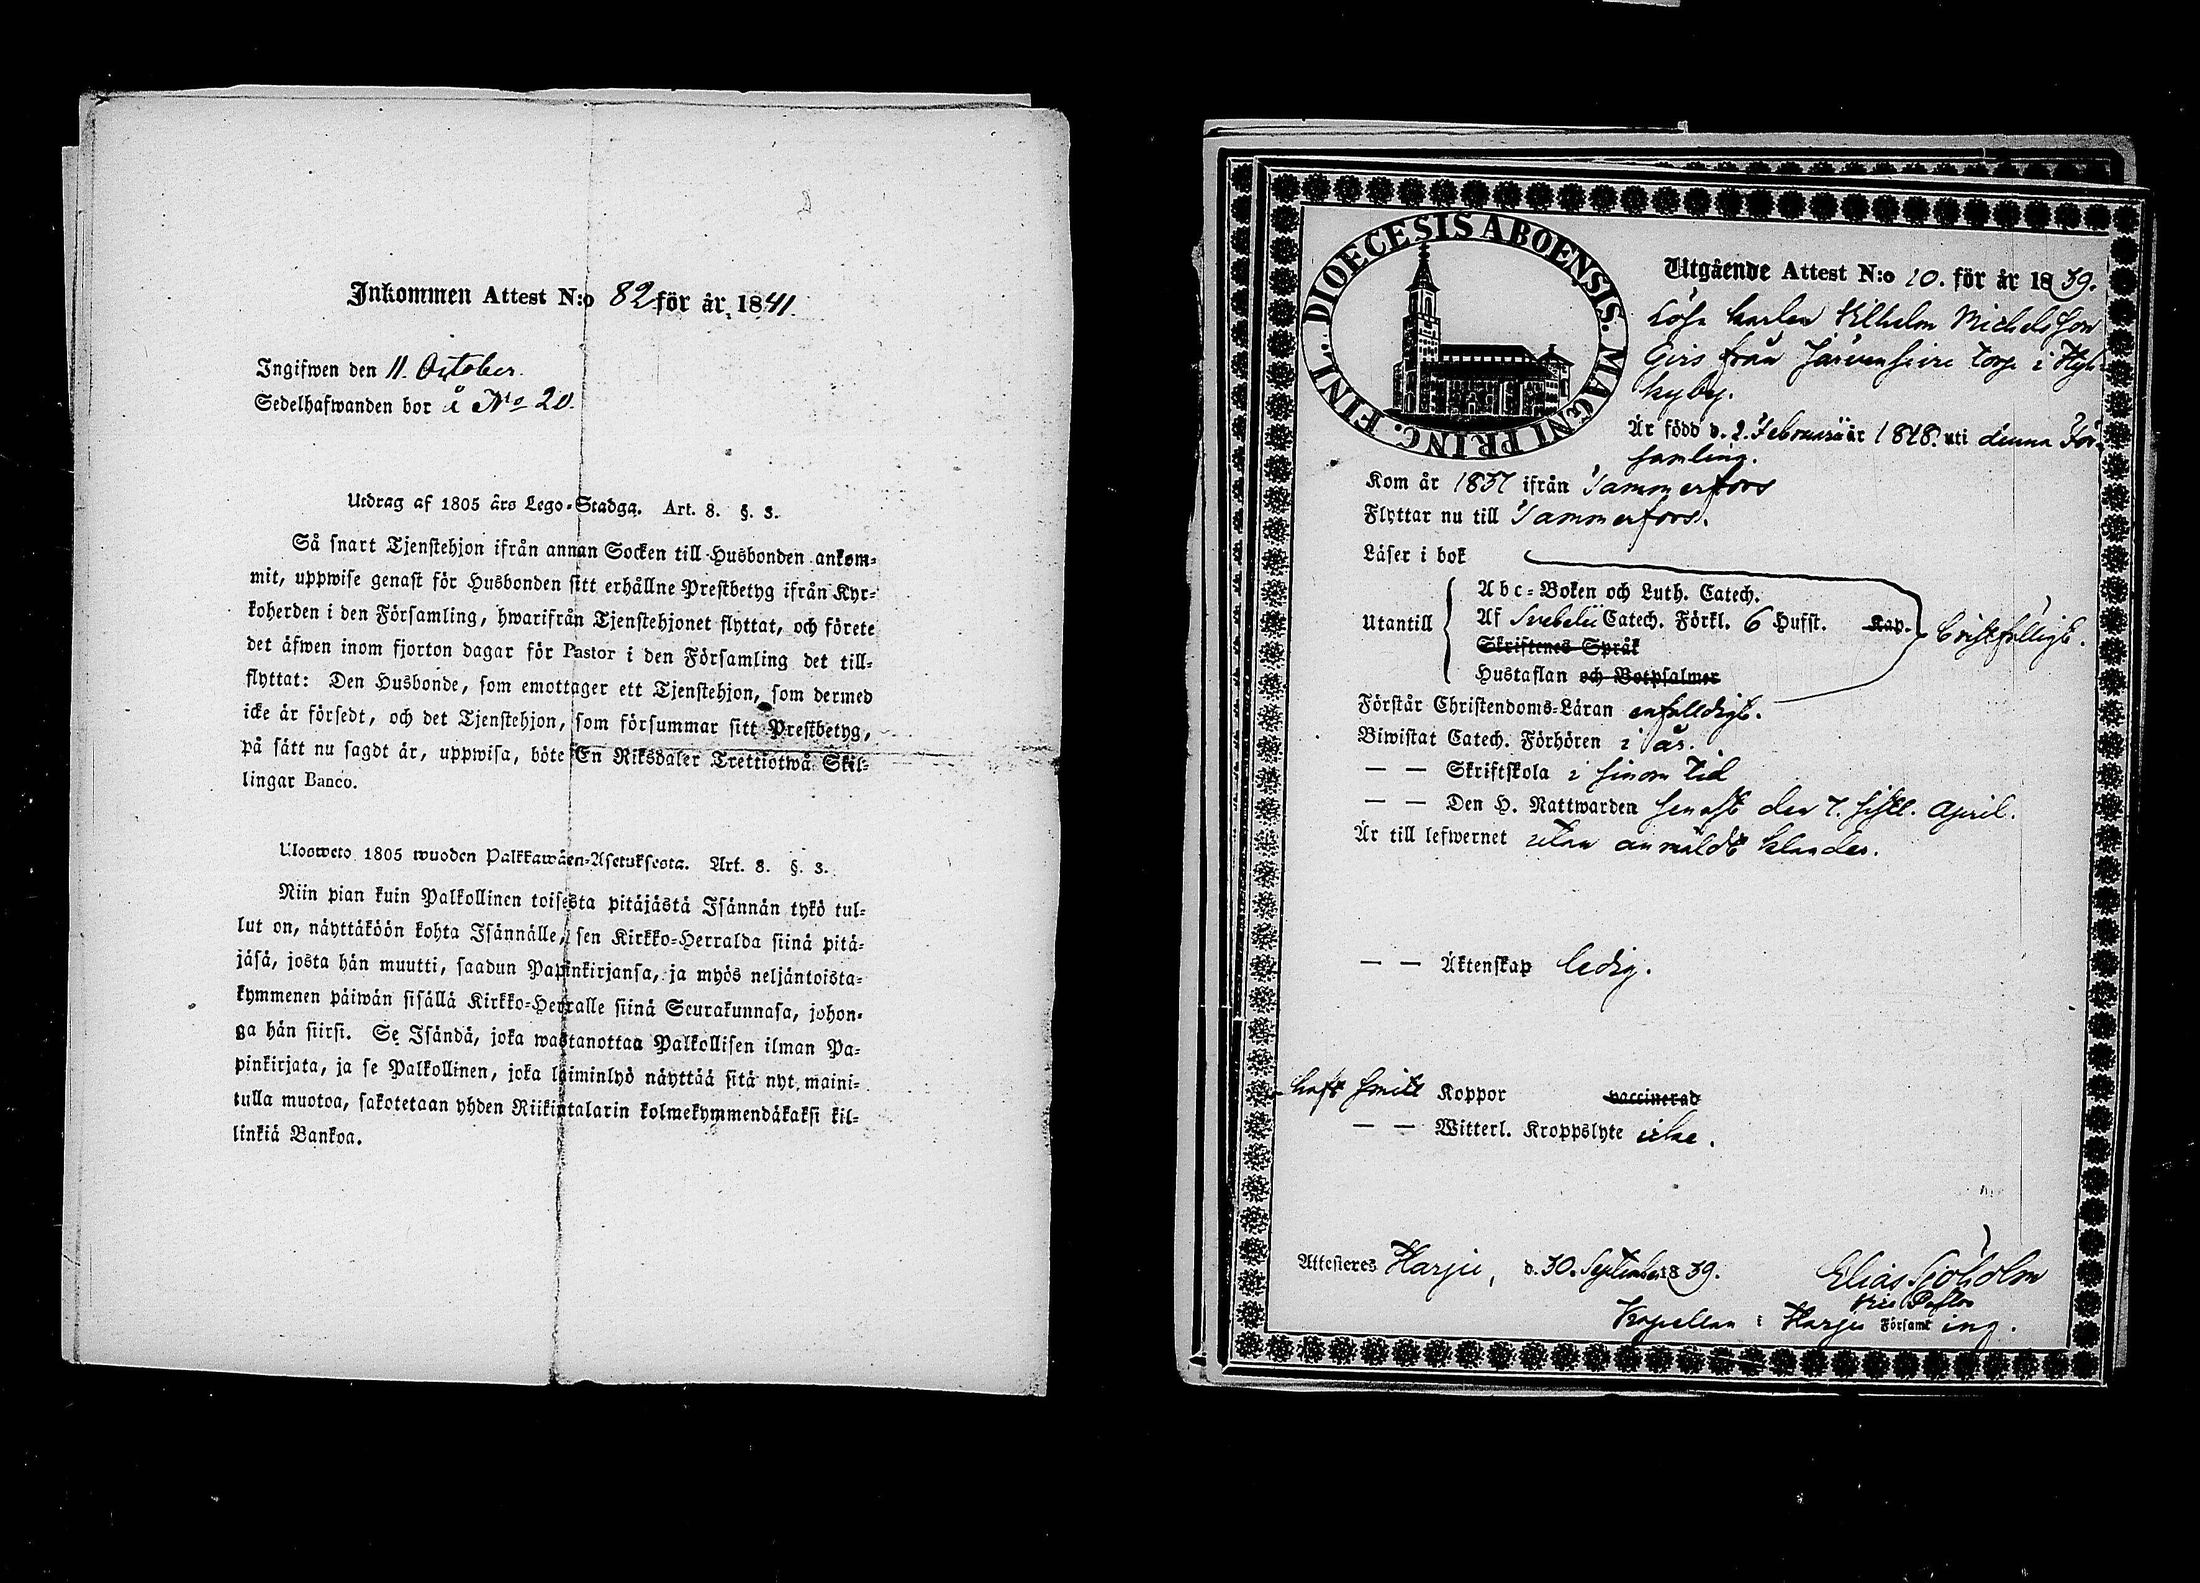 Inkommen Attest N:o 82 för år 1841.
Ingifwen den 11. October.
Sedelhafwanden bor å No 20.
Utdrag af 1805 års Lego-Stadga. Art. 8. §. 3.
Så snart Tjenstehjon ifrån annan Socken till Husbonden ankom-
mit, uppwise genast för Husbonden sitt erhållne Prestbetyg ifrån Kyr-
koherden i den Församling, hwarifrån Tjenstehjonet flyttat, och förete
det äfwen inom fjorton dagar för Pastor i den Församling det till-
flyttat: Den Husbonde, som emottager ett Tjenstehjon, som dermed
icke är försedt, och det Tjenstehjon, som försummar sitt Prestbetyg,
på sätt nu sagdt är, uppwisa, böte En Riksdaler Trettiotwå Skil-
lingar Banco.
Ulosweto 1805 wuoden Palkkawäen-Asetuksesta. Art. 8. §. 3.
Niin pian kuin Palkollinen toisesta pitäjästä Isännän tykö tul-
lut on, näyttäköön kohta Isännälle, sen Kirkko-Herralda siinä pitä-
jäsä, josta hän muutti, saadun Papinkirjansa, ja myös neljäntoista-
kymmenen päiwän sisällä Kirkko-Herralle siinä Seurakunnasa, johon-
ga hän siirsi. Se Isändä, joka wastanottaa Palkollisen ilman Pa-
pinkirjata, ja se Palkollinen, joka laiminlyö näyttää sitä nyt maini-
tulla muotoa, sakotetaan yhden Riikintalarin kolmekymmendäkaksi kil-
linkiä Bankoa.
DIOECESIS ABOENSIS. MAGNI PRINC. FINL.
Utgående Attest N:o 20. för år 1839.
Löse karlen Vilhelm Michelsson
från Järvensivu torp i Hyh-
kyby.
Är född d. 2. Februari år 1818. uti denna För-
samling.
Kom år 1837 ifrån Tammerfors
Flyttar nu till Tammerfors.
Läser i bok
Utantill
Abc-Boken och Luth. Catech.
Af Svebelii Catech. Förkl. 6 Hufst. Kap.
Skriftenes Språk
Hustaflan och Botpsalmer
Förstår Christendoms-Läran enfalldigt.
Biwistat Catech. Förhören i år.
— — Skriftskola i sinom tid
— — Den H. Nattwarden senast den 7. sistl. April.
Är till lefwernet utan anmäldt klander.
— — Äktenskap ledig.
haft smitt Koppor vaccinerad
— — Witterl. Kroppslyte icke.
Attesteres Harju, d. 30. September 1839.
Elias Sjöholm
Vice Pastor
Kapellan i Harju Församling.